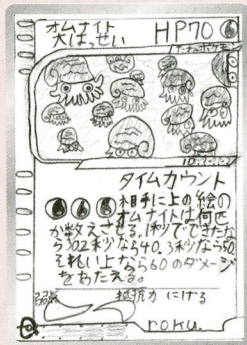 オムナイト
大はっせい HP70
タイムカウント
相手に上の絵の
オムナイトは何匹
か数えさせる。1秒でできたな
ら30 2秒なら40、3秒なら50
それい上なら60のダメージ
をあたえる。
抵抗力 にげる
roku.